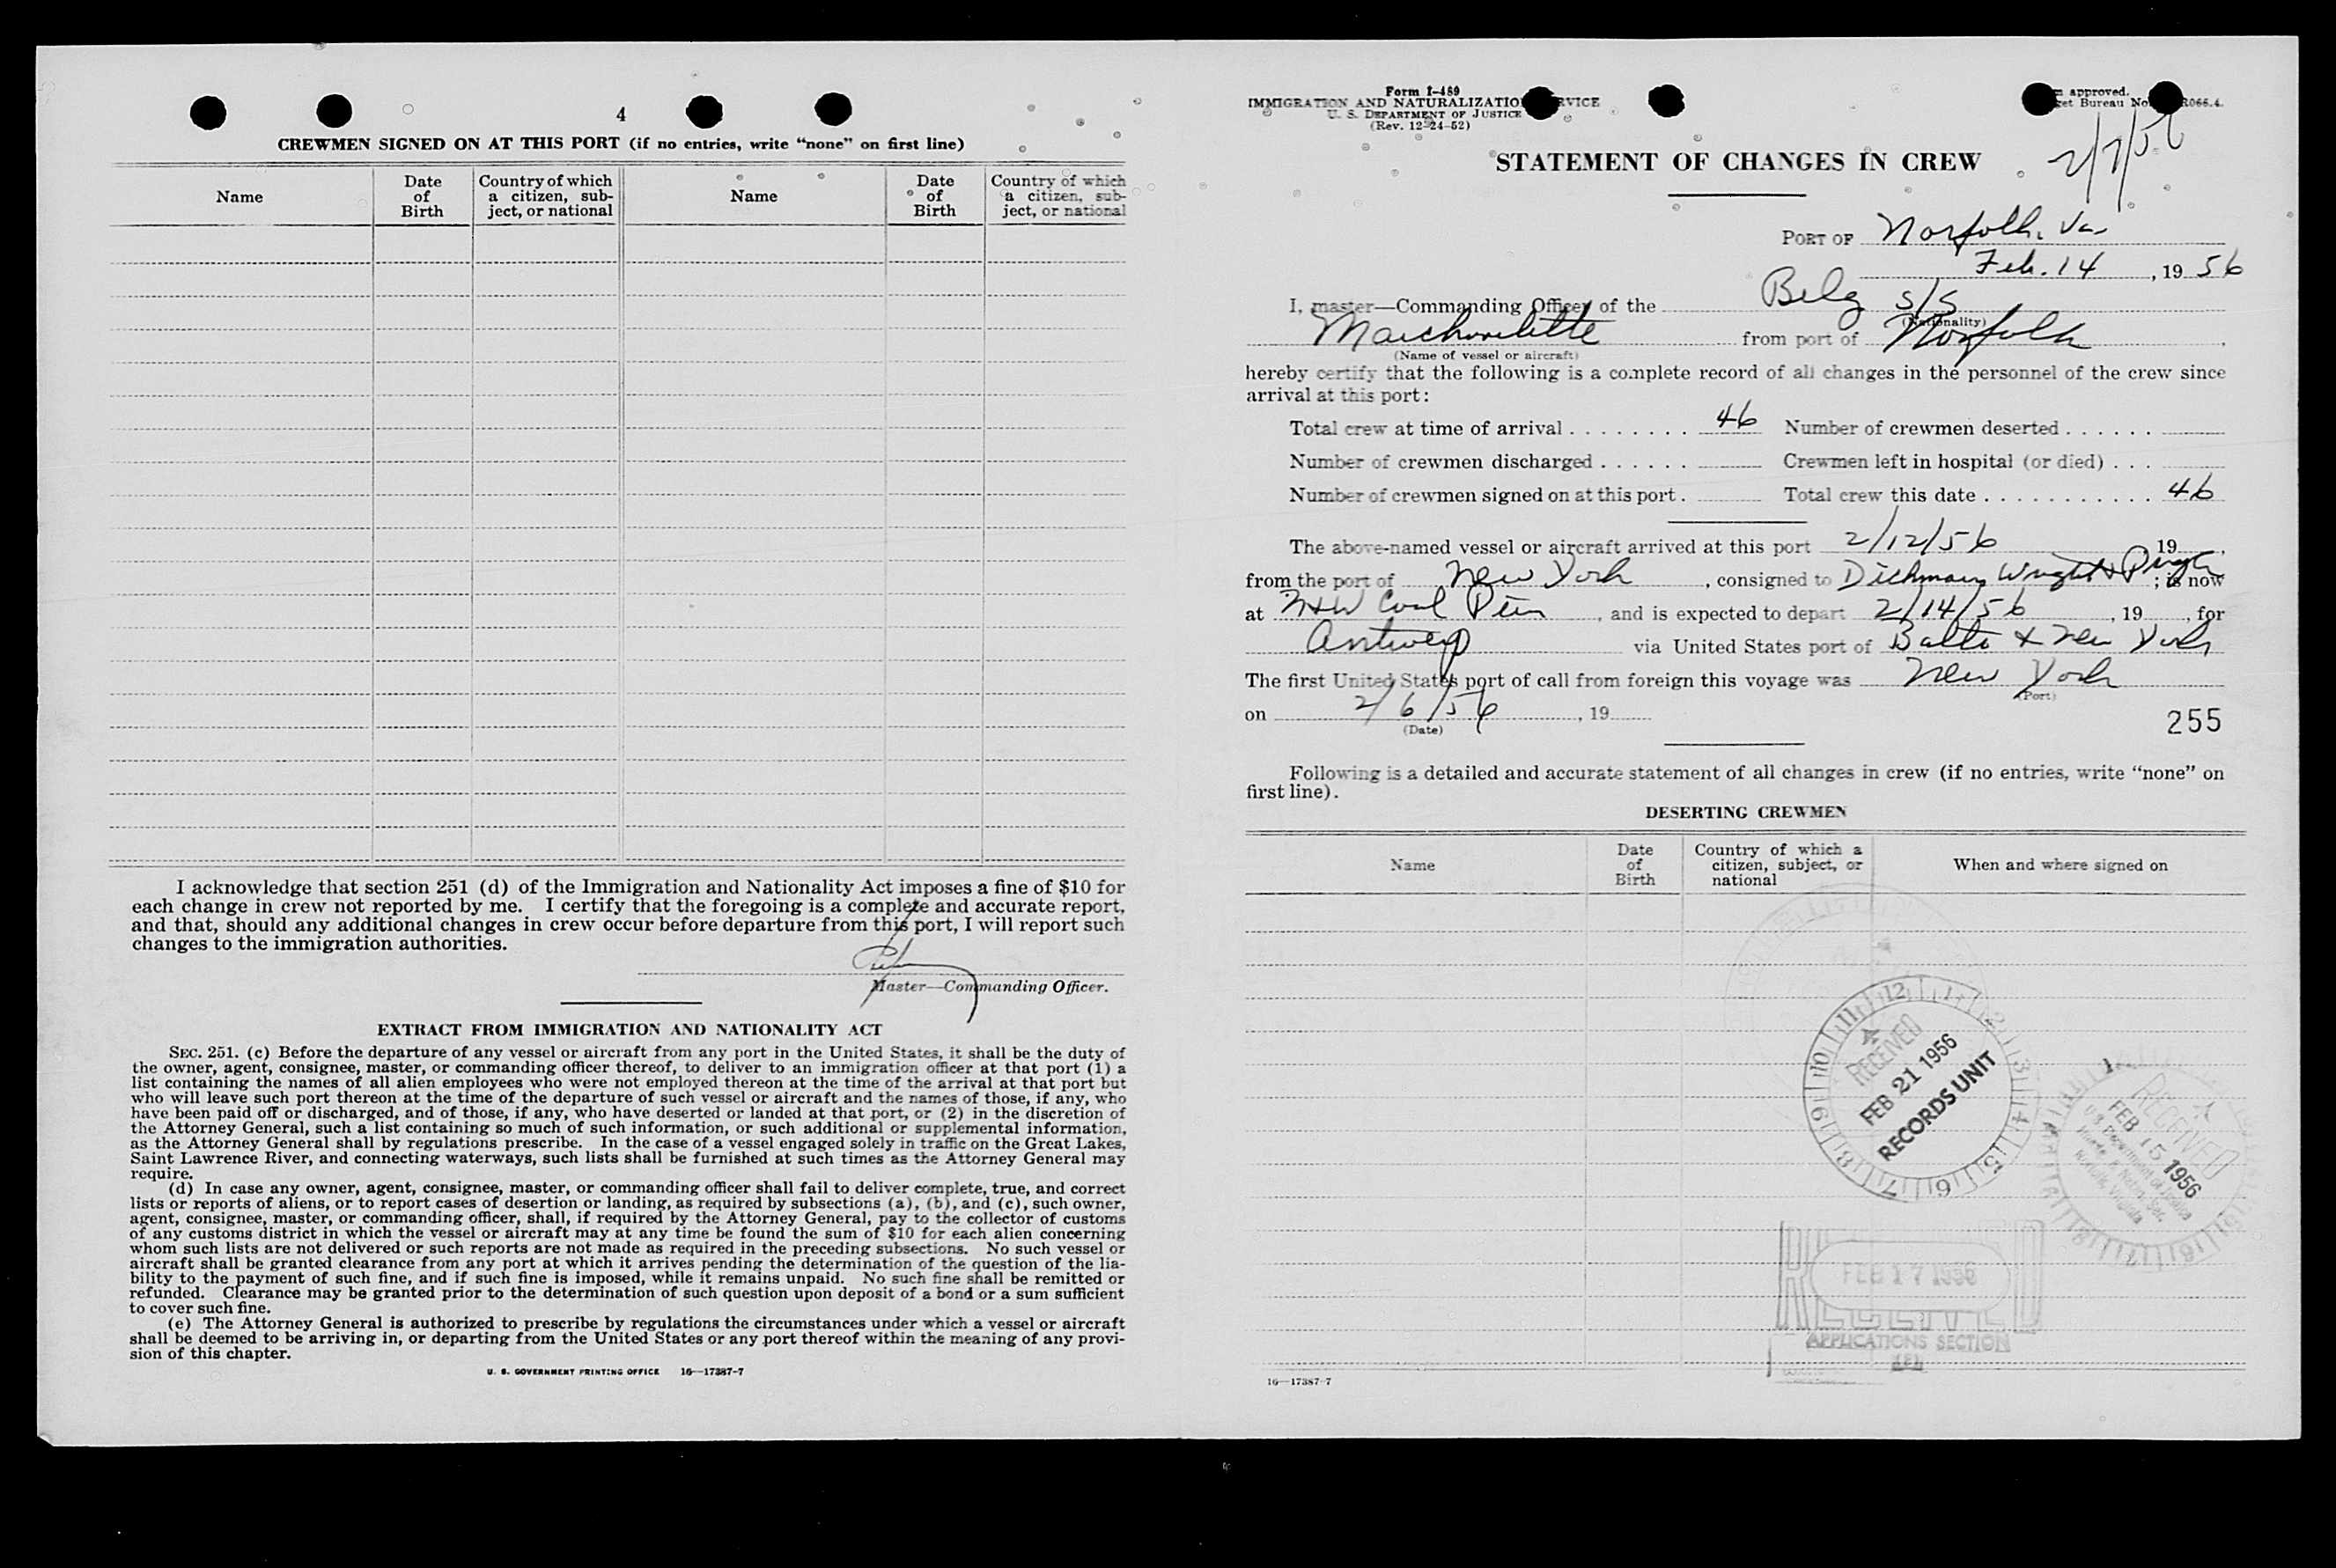 4
CREWMEN SIGNED ON AT THIS PORT (if no entries, write “none” on first line)
Name
Date of Birth
Country of which a citizen, subject, or national
Name
Date of Birth
Country of which a citizen, subject, or national
I acknowledge that section 251 (d) of the Immigration and Nationality Act imposes a fine of $10 for
each change in crew not reported by me. I certify that the foregoing is a complete and accurate report,
and that, should any additional changes in crew occur before departure from this port, I will report such
changes to the immigration authorities.
Master—Commanding Officer.
EXTRACT FROM IMMIGRATION AND NATIONALITY ACT
SEC. 251. (c) Before the departure of any vessel or aircraft from any port in the United States, it shall be the duty of
the owner, agent, consignee, master, or commanding officer thereof, to deliver to an immigration officer at that port (1) a
list containing the names of all alien employees who were not employed thereon at the time of the arrival at that port but
who will leave such port thereon at the time of the departure of such vessel or aircraft and the names of those, if any, who
have been paid off or discharged, and of those, if any, who have deserted or landed at that port, or (2) in the discretion of
the Attorney General, such a list containing so much of such information, or such additional or supplemental information,
as the Attorney General shall by regulations prescribe. In the case of a vessel engaged solely in traffic on the Great Lakes,
Saint Lawrence River, and connecting waterways, such lists shall be furnished at such times as the Attorney General may
require.
(d) In case any owner, agent, consignee, master, or commanding officer shall fail to deliver complete, true, and correct
lists or reports of aliens, or to report cases of desertion or landing, as required by subsections (a), (b), and (c), such owner,
agent, consignee, master, or commanding officer, shall, if required by the Attorney General, pay to the collector of customs
of any customs district in which the vessel or aircraft may at any time be found the sum of $10 for each alien concerning
whom such lists are not delivered or such reports are not made as required in the preceding subsections. No such vessel or
aircraft shall be granted clearance from any port at which it arrives pending the determination of the question of the lia-
bility to the payment of such fine, and if such fine is imposed, while it remains unpaid. No such fine shall be remitted or
refunded. Clearance may be granted prior to the determination of such question upon deposit of a bond or a sum sufficient
to cover such fine.
(e) The Attorney General is authorized to prescribe by regulations the circumstances under which a vessel or aircraft
shall be deemed to be arriving in, or departing from the United States or any port thereof within the meaning of any provi-
sion of this chapter.
U. S. GOVERNMENT PRINTING OFFICE 16—17387-7
Form I-489
IMMIGRATION AND NATURALIZATIO RVICE
U. S. DEPARTMENT OF JUSTICE
(Rev. 12-24-52)
approved.
et Bureau No. R066.4.
2/7/56
STATEMENT OF CHANGES IN CREW
PORT OF Norfolk, Va.
Feb. 14, 19 56
I, master—Commanding Officer of the Belg S/S
(Nationality)
Marchovelette from port of Norfolk,
(Name of vessel or aircraft)
hereby certify that the following is a complete record of all changes in the personnel of the crew since
arrival at this port:
Total crew at time of arrival ........ 46 Number of crewmen deserted ......
Number of crewmen discharged ...... Crewmen left in hospital (or died) ...
Number of crewmen signed on at this port . Total crew this date ........... 46
The above-named vessel or aircraft arrived at this port 2/12/56 19 ,
from the port of New York, consigned to Dichmann, Wright & Pugh; is now
at N&W Coal Pier, and is expected to depart 2/14/56, 19 , for
Antwerp via United States port of Balto & New York
The first United States port of call from foreign this voyage was New York
(Port)
on 2/6/56, 19
(Date)
255
Following is a detailed and accurate statement of all changes in crew (if no entries, write “none” on
first line).
DESERTING CREWMEN
Name
Date of Birth
Country of which a citizen, subject, or national
When and where signed on
12 1 2 3 4 5 6 7 8 9 10 11
RECEIVED
FEB 21 1956
RECORDS UNIT
RECEIVED
FEB 15 1956
U S Department of Justice
Norfolk, Virginia
RECEIVED
FEB 17 1956
APPLICATIONS SECTION
16—17387-7